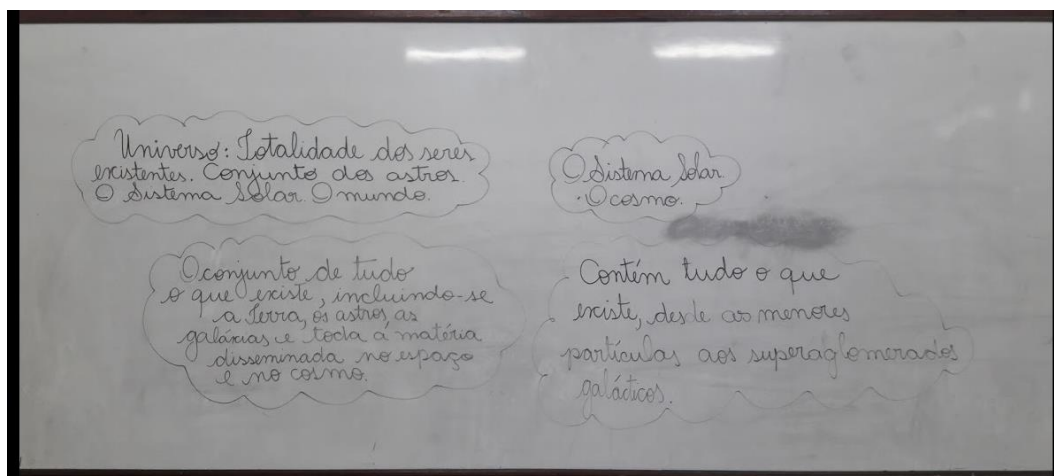 Universo: Totalidade dos seres
existentes. Conjunto dos astros.
O Sistema Solar. O mundo.
O Sistema Solar.
O cosmo.
O conjunto de tudo
o que existe, incluindo-se
a Terra, os astros, as
galáxias e toda a matéria
disseminada no espaço
e no cosmo.
Contém tudo o que
existe, desde as menores
partículas aos superaglomerados
galácticos.